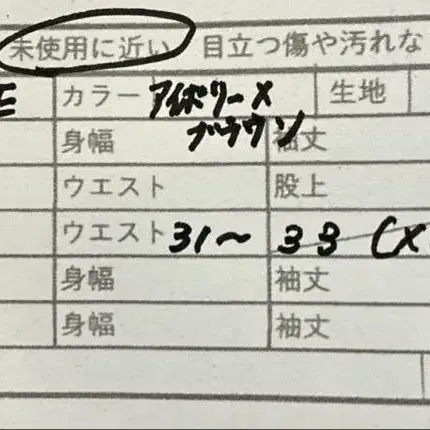 未使用に近い 目立つ傷や汚れな
カラー アイボリー× 生地
ブラウン
身幅 袖丈
ウエスト 股上
ウエスト 31〜 33 (×
身幅 袖丈
身幅 袖丈